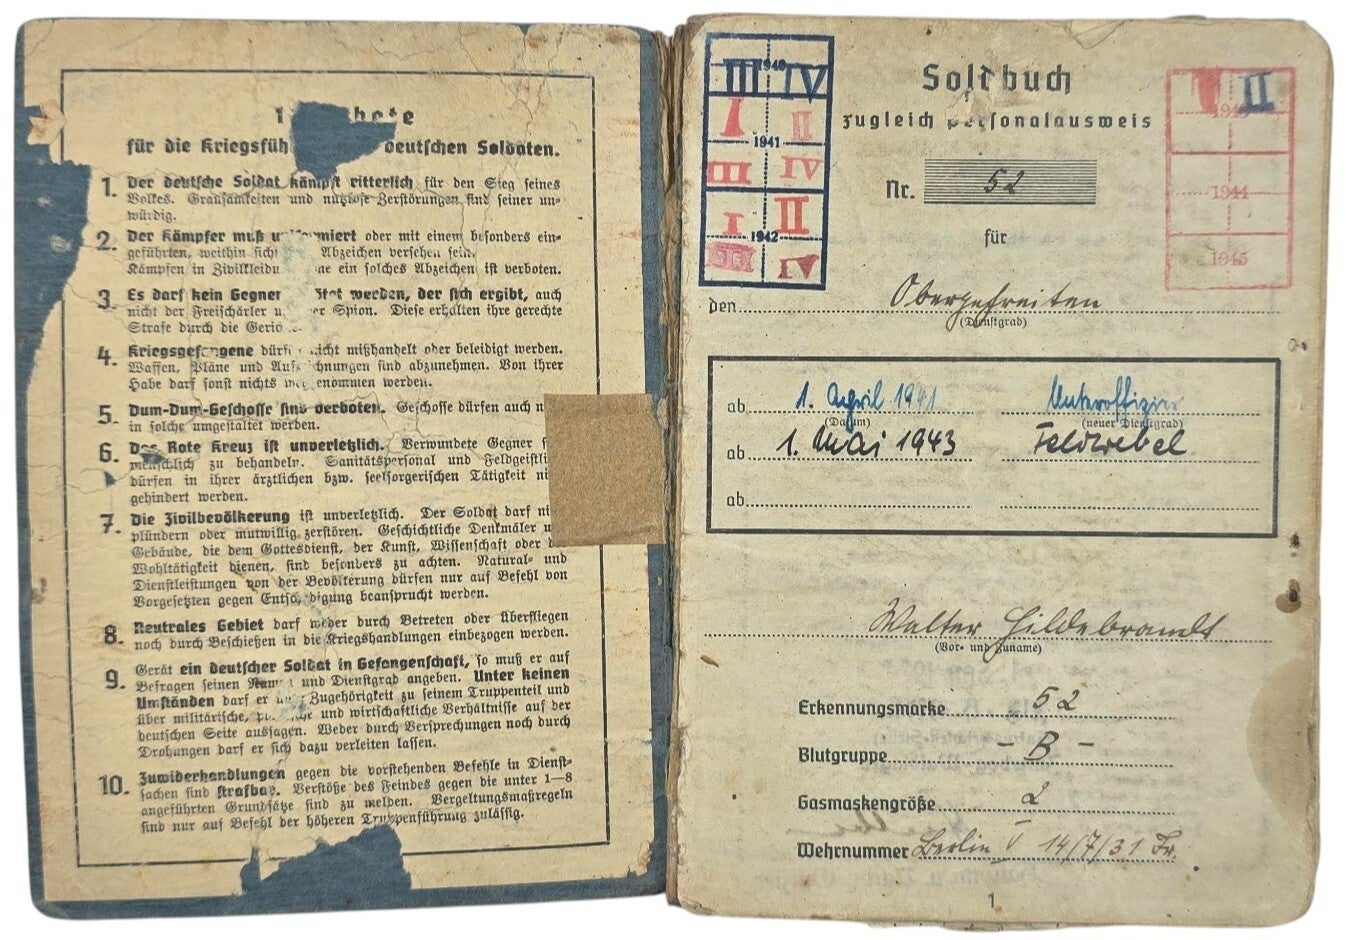 für die Kriegsfüh deutschen Soldaten.
1. Der deutsche Soldat kämpft ritterlich für den Sieg seines
Volkes. Grausamkeiten und nutzlose Zerstörungen sind seiner un-
würdig.
2. Der Kämpfer muß uniformiert oder mit einem besonders ein-
geführten, weithin sicht Abzeichen versehen sein.
Kämpfen in Zivilkleidu ne ein solches Abzeichen ist verboten.
3. Es darf kein Gegner tet werden, der sich ergibt, auch
nicht der Freischärler u er Spion. Diese erhalten ihre gerechte
Strafe durch die Geric
4. Kriegsgefangene dürf nicht mißhandelt oder beleidigt werden.
Waffen, Pläne und Aufzeichnungen sind abzunehmen. Von ihrer
Habe darf sonst nichts weggenommen werden.
5. Dum-Dum-Geschosse sind verboten. Geschosse dürfen auch n
in solche umgestaltet werden.
6. Das Rote Kreuz ist unverletzlich. Verwundete Gegner s
menschlich zu behandeln. Sanitätspersonal und Feldgeistli
dürfen in ihrer ärztlichen bzw. seelsorgerischen Tätigkeit ni
gehindert werden.
7. Die Zivilbevölkerung ist unverletzlich. Der Soldat darf ni
plündern oder mutwillig zerstören. Geschichtliche Denkmäler u
Gebäude, die dem Gottesdienst, der Kunst, Wissenschaft oder
Wohltätigkeit dienen, sind besonders zu achten. Natural- und
Dienstleistungen von der Bevölkerung dürfen nur auf Befehl von
Vorgesetzten gegen Entschädigung beansprucht werden.
8. Neutrales Gebiet darf weder durch Betreten oder Überfliegen
noch durch Beschießen in die Kriegshandlungen einbezogen werden.
9. Gerät ein deutscher Soldat in Gefangenschaft, so muß er auf
Befragen seinen Namen und Dienstgrad angeben. Unter keinen
Umständen darf er über Zugehörigkeit zu seinem Truppenteil und
über militärische, po che und wirtschaftliche Verhältnisse auf der
deutschen Seite aussagen. Weder durch Versprechungen noch durch
Drohungen darf er sich dazu verleiten lassen.
10. Zuwiderhandlungen gegen die vorstehenden Befehle in Dienst-
sachen sind strafbar. Verstöße des Feindes gegen die unter 1—8
angeführten Grundsätze sind zu melden. Vergeltungsmaßregeln
sind nur auf Befehl der höheren Truppenführung zulässig.
1940
III IV
I II
1941
III IV
I II
1942
III IV
Soldbuch
zugleich Personalausweis
Nr. 52
für
II
1943
1944
1945
den Obergefreiten
(Dienstgrad)
ab 1. April 1941 Unteroffizier
(Datum) (neuer Dienstgrad)
ab 1. Mai 1943 Feldwebel
ab
Walter Hildebrandt
(Vor- und Zuname)
Erkennungsmarke 52
Blutgruppe – B –
Gasmaskengröße 2
Wehrnummer Berlin V 14/7/31 Fr.
1